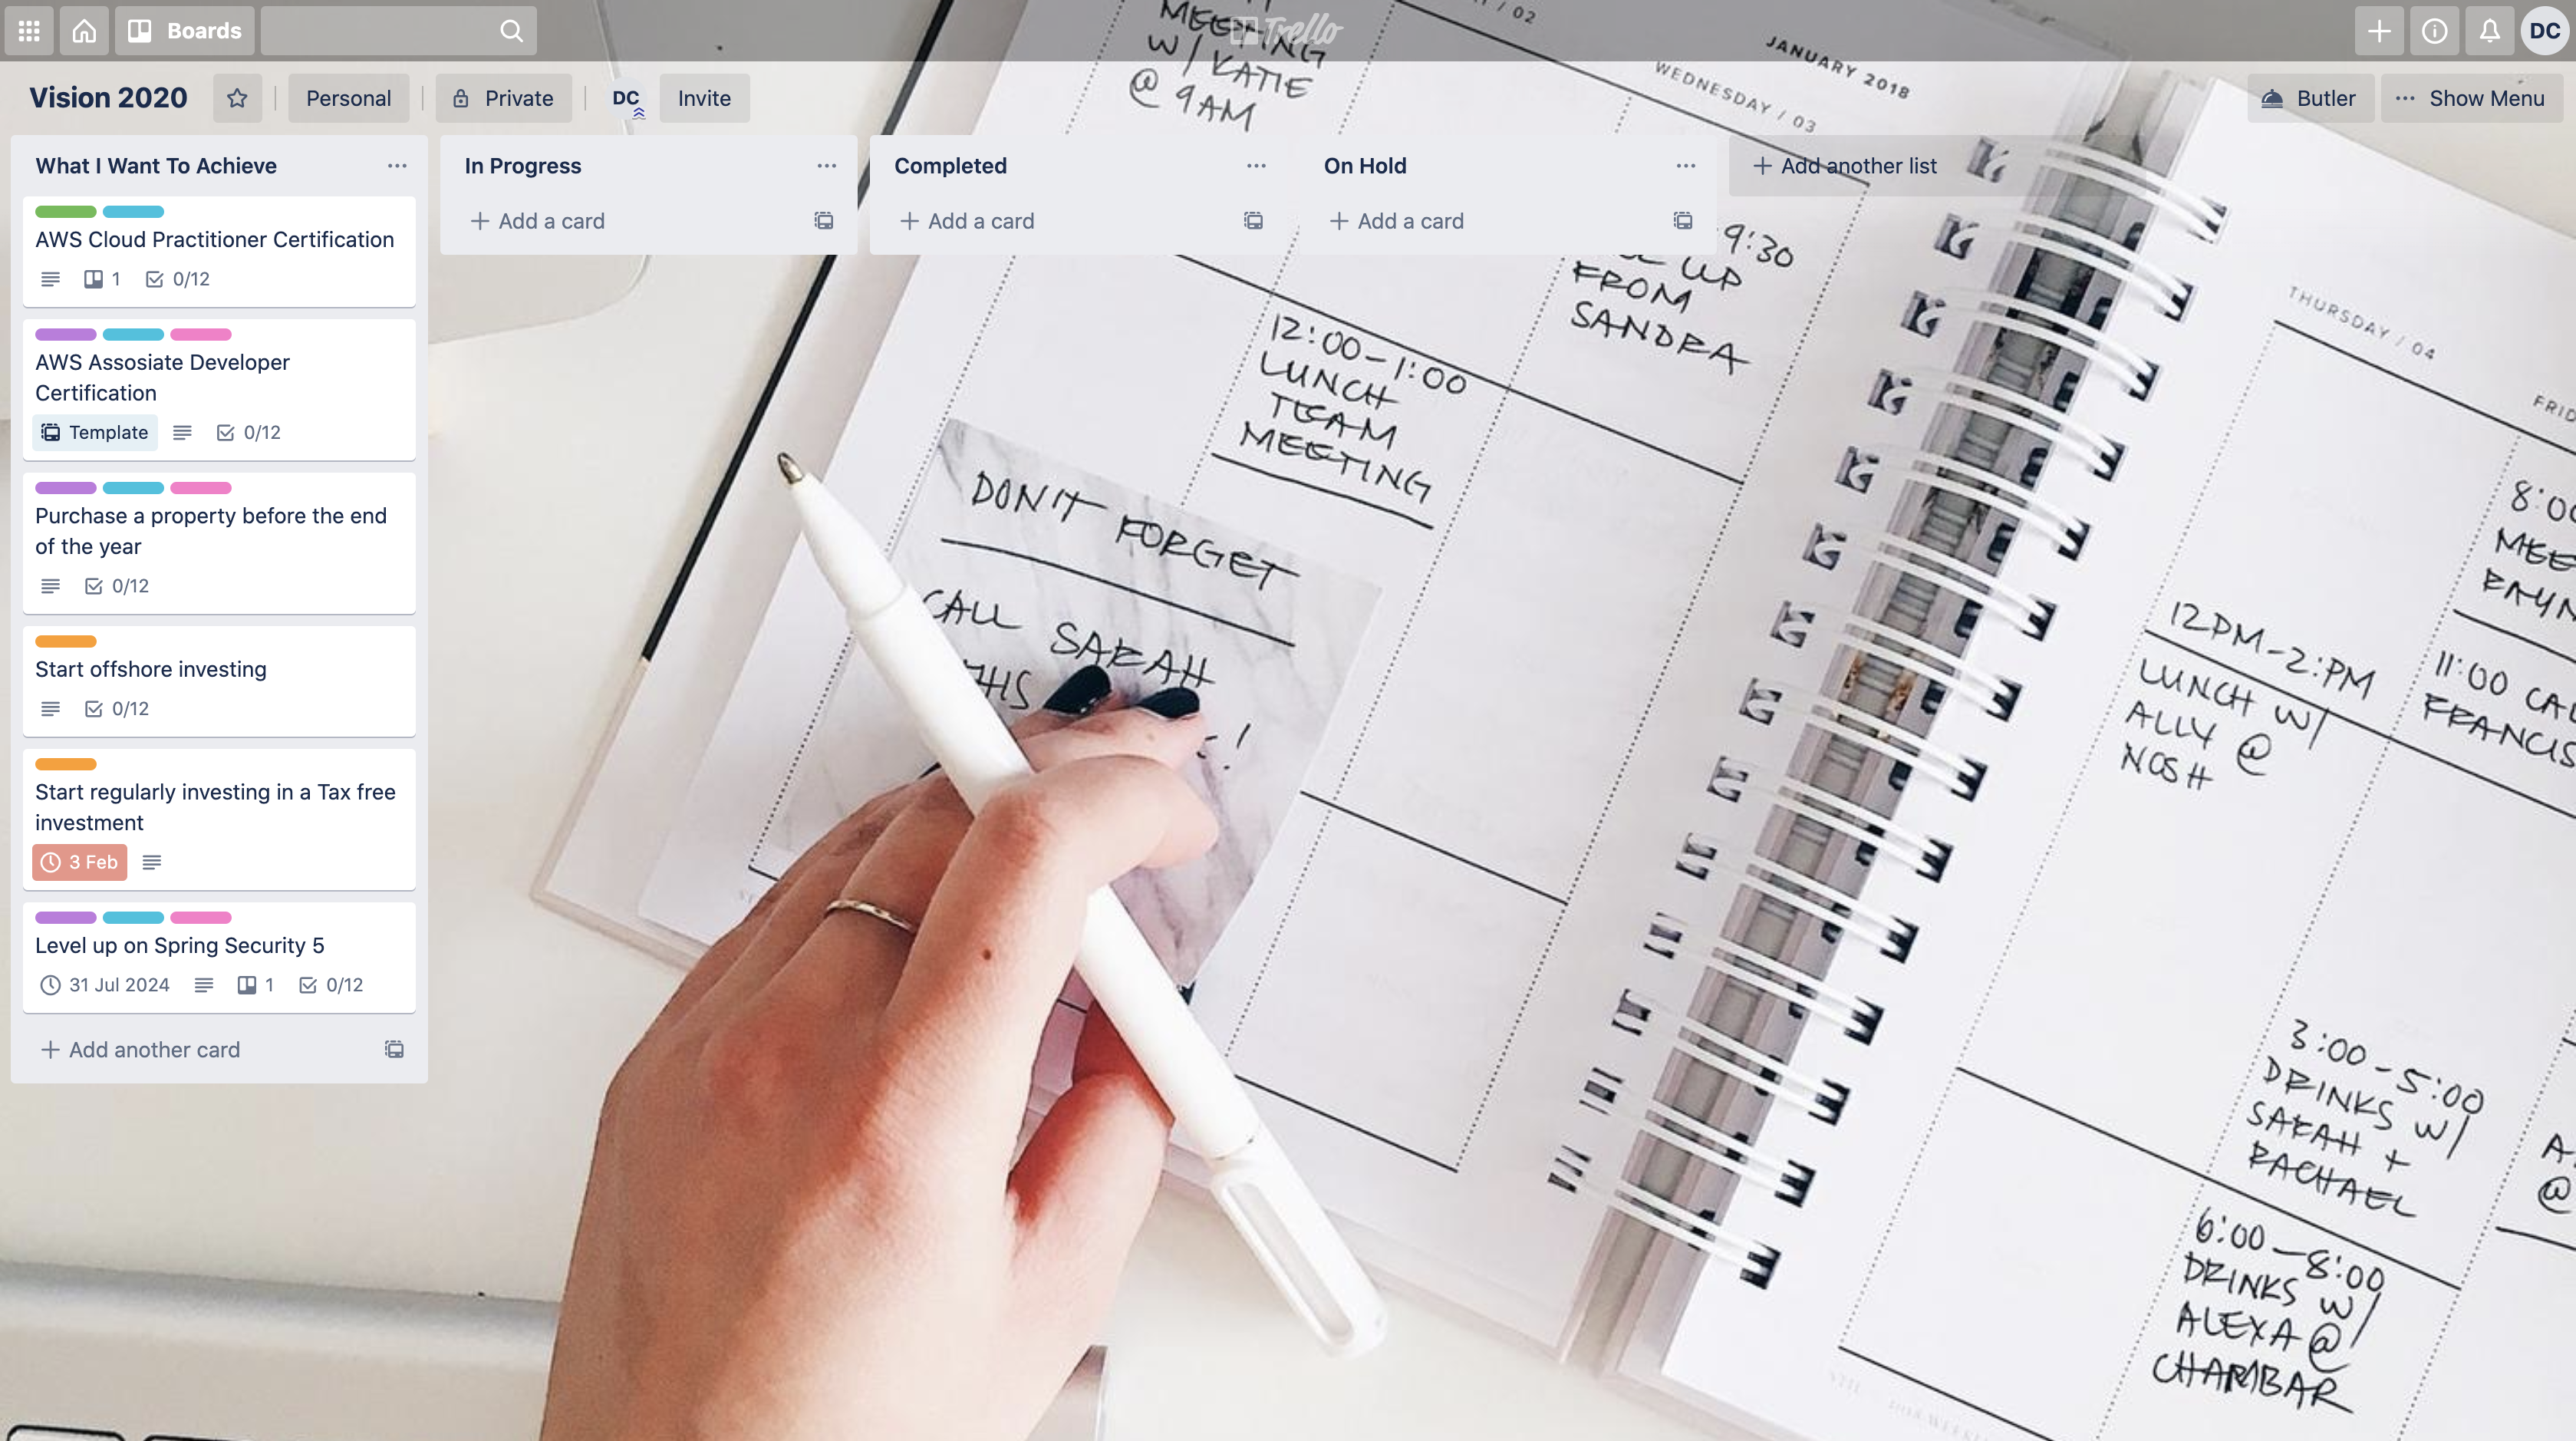 Boards
Trello
DC
Vision 2020
Personal
Private
DC
Invite
Butler
Show Menu
What I Want To Achieve
AWS Cloud Practitioner Certification
1
0/12
AWS Assosiate Developer
Certification
Template
0/12
Purchase a property before the end
of the year
0/12
Start offshore investing
0/12
Start regularly investing in a Tax free
investment
3 Feb
Level up on Spring Security 5
31 Jul 2024
1
0/12
Add another card
In Progress
Add a card
Completed
Add a card
On Hold
Add a card
Add another list
MEETING
W/ KATIE
@ 9AM
/ 02
JANUARY 2018
WEDNESDAY / 03
9:30
UP
FROM
SANDRA
12:00-1:00
LUNCH
TEAM
MEETING
DON'T FORGET
CALL SARAH
THIS
!
THURSDAY / 04
12PM-2:PM
LUNCH W/
ALLY @
NOSH
8:00
11:00
3:00-5:00
DRINKS W/
SARAH +
RACHAEL
6:00-8:00
DRINKS W/
ALEXA @
CHAMBAR
@